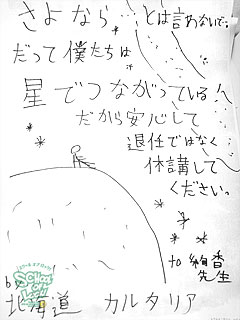 さよなら…とは言わないで…
だって僕たちは
星でつながっている!
だから安心して
退任ではなく
休講して
ください。
to 絢香
先生
by
北海道 カルタリア